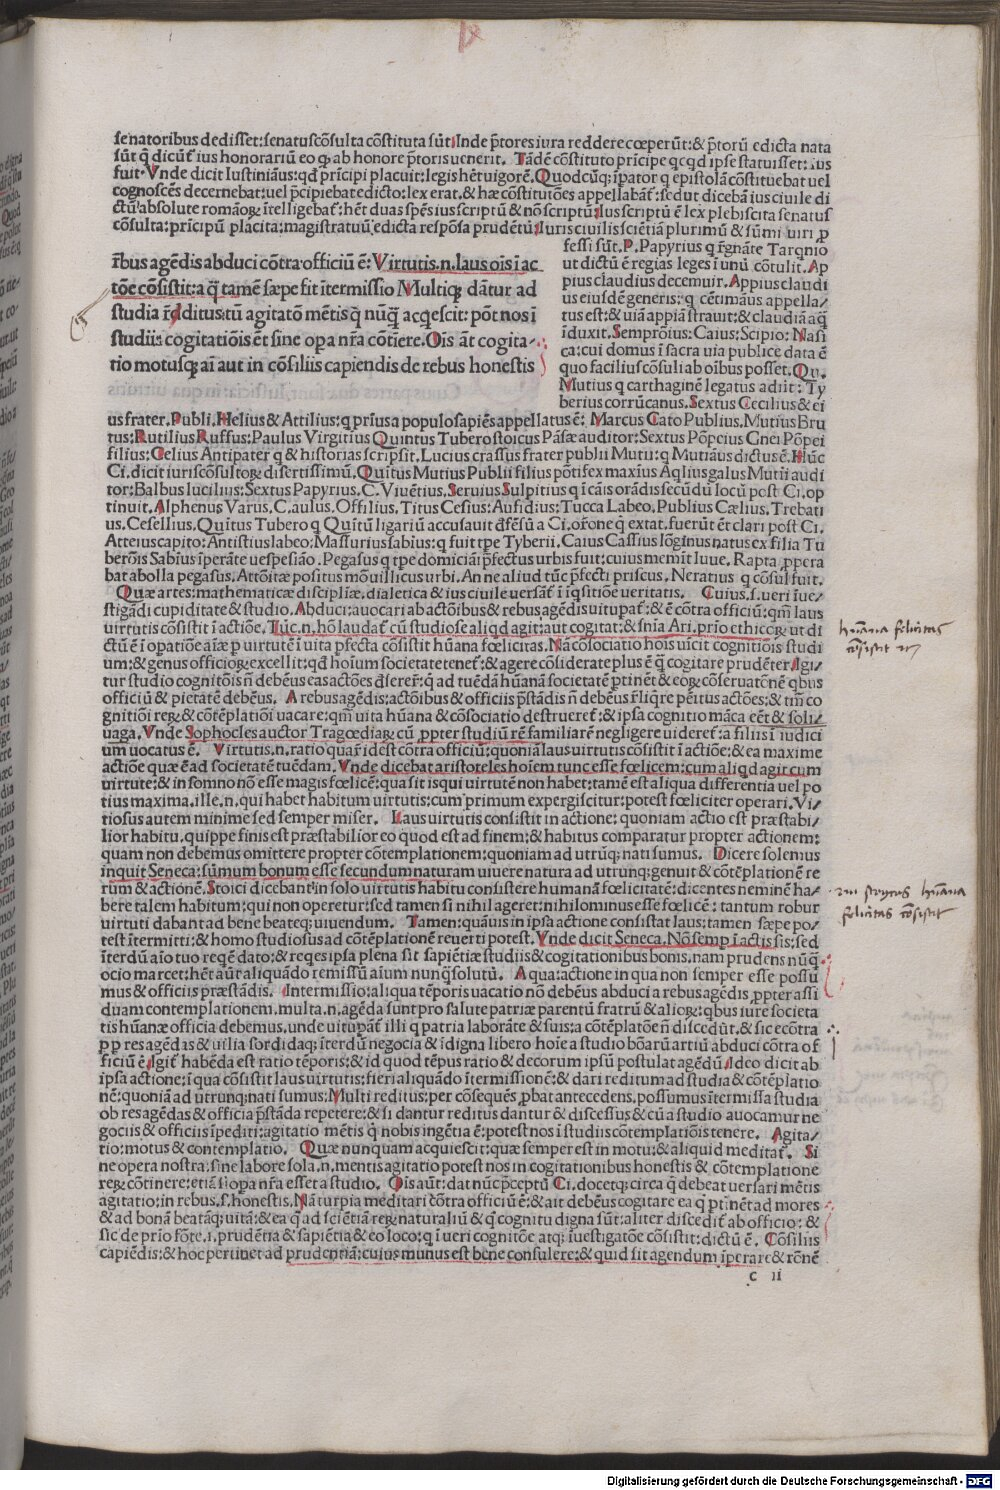 senatoribus dedisset: senatuscōsulta cōstituta sūt Inde p̄tores iura reddere cœperūt: & p̄torū edicta nata
sūt q̄ dicūt ius honorariū eo q ab honore p̄toris uenerit. Tādē cōstituto prīcipe
fuit. Vnde dicit Iustiniāus: qd prīcipi placuit: legis hēt uigorē.
cognoscēs decernebat: uel p̄cipiebat edicto: lex erat. & hæ cōstitutōes appellabāt: sed ut dicebā ius ciuile di
ctū absolute romāoꝝ ītelligebat: hēt duas spēs ius scriptū & nō scriptū: Ius scriptū ē lex plebiscita senatus
cōsulta: prīcipū placita: magistratuū edicta respōsa prudētū: Iuris ciuilis sciētiā plurimū & sūmi uiri p
r̄bus agēdis abduci cōtra officiū ē: Virtutis.n. laus oīs ī ac
tōe cōsistit: a q̄ tamē sæpe fit ītermissio Multiqꝫ dātur ad
studia r̄dditus: tū agitatō mētis q̄ nūq̄ acqescit: pōt nos ī
studiis cogitatiōis ēt sine opa nr̄a cōtiere. Ois āt cogita/
tio motusqꝫ aī aut in cōsiliis capiendis de rebus honestis
fessi sūt. P. Papyrius q r̄gnāte Tarqnio
ut dictū ē regias leges ī unū cōtulit. Ap
pius claudius decemuir. Appius claudi
us eiusdē generis: q cētimāus appella/
tus est: & uiā appiā strauit: & claudiā aq̄
īduxit. Semprōius: Caius: Scipio: Nasi
ca: cui domus ī sacra uia publice data ē
quo facilius cōsuli ab oībus posset. Qu.
Mutius q carthaginē legatus adiit: Ty
berius corrūcanus. Sextus Cecilius & ei
us frater. Publi. Helius & Attilius: q prīus a populo sapiēs appellatus ē: Marcus Cato Publius. Mutius Bru
tus: Rutilius Ruffus: Paulus Virgitius Quintus Tubero stoicus Pāsæ auditor: Sextus Pōpeius Cnei Pōpei
filius: Celius Antipater q & historias scripsit. Lucius crassus frater publii Mutii: q Mutiāus dictus ē. Hūc
Ci. dicit iuriscōsultoꝝ disertissimū. Quītus Mutius Publii filius pōtifex maxius Aqlius galus Mutii audi
tor: Balbus lucilius: Sextus Papyrius. C. Viuētius. Seruius Sulpitius q ī cāis orādis secūdū locū post Ci. op
tinuit. Alphenus Varus. C. aulus. Offilius. Titus Cesius: Aufidius: Tucca Labeo. Publius Cælius. Trebati
us. Cesellius. Quītus Tubero q Quītū ligariū accusauit dfēsū a Ci. or̄one q̄ extat. fuerūt ēt clari post Ci.
Atteius capito: Antistius labeo: Massurius sabius: q fuit tpe Tyberii. Caius Cassius lōginus natus ex filia Tu
berōis Sabius īperāte uespesiāo. Pegasus q tpe domiciāi p̄fectus urbis fuit: cuius memīt Iuue. Rapta pꝑera
bat abolla pegasus. Attōitæ positus mō uillicus urbi. An ne aliud tūc p̄fecti priscus. Neratius q cōsul fuit.
Quæ artes: mathematicæ discipliæ. dialetica & ius ciuile uersāt ī īqsitiōe ueritatis. Cuius. s. ueri īue/
stigādi cupiditate & studio. Abduci: auocari ab actōibus & rebus agēdis uitupat: & ē cōtra officiū: qm̄ laus
virtutis cōsistit ī actiōe. Tūc.n. hō laudat cū studiose aliqd agit: aut cogitat: & snīa Ari. prīo ethicoꝝ ut di
ctū ē ī opatiōe aīæ p uirtutē ī uita pfecta cōsistit hūana fœlicitas. Nā cōsociatio hoīs uīcit cognitiōis studi
um: & genus officioꝝ excellit: qd hoīum societate tenet: & agere cōsiderate plus ē q̄ cogitare prudēter. Agi/
tur studio cognitōis n̄ debēus eas actōes dserer̄: q̄ ad tuēdā hūanā societatē ptinēt & eoꝝ cōseruatōnē qbus
officiū & pietatē debēus. A rebus agēdis: actōibus & officiis p̄stādis n̄ debēus r̄liqre pēitus actōes: & tm̄ co
gnitiōi reꝝ & cōtēplatiōi uacare: qm̄ uita hūana & cōsociatio destrueret: & ipsa cognitio māca eēt & soli/
uaga. Vnde Sophocles auctor Tragœdiaꝝ cū ppter studiū rē familiarē negligere uideret: a filiis ī iudici
um uocatus ē. Virtutis.n. ratio quar̄ id ēst cōtra officiū: quoniā laus uirtutis cōsistit ī actiōe: & ea maxime
actiōe quæ ē ad societatē tuēdam. Vnde dicebat aristoteles hoīem tunc esse fœlicem: cum aliqd agit cum
uirtute: & in somno nō esse magis fœlicē: qua sit is qui uirtutē non habet: tamē est aliqua differentia uel po
tius maxima. ille.n. qui habet habitum uirtutis: cum primum expergiscitur: potest fœliciter operari. Vi/
tiosus autem minime sed semper miser. Laus uirtutis consistit in actione: quoniam actio est præstabi/
lior habitu. quippe finis est præstabilior eo quod est ad finem: & habitus comparatur propter actionem:
quam non debemus omittere propter cōtemplationem: quoniam ad utrūqꝫ nati sumus. Dicere solemus
inquit Seneca: sūmum bonum esse secundum naturam uiuere natura ad utrunqꝫ genuit & cōtēplationē re
rum & actionē. Stoici dicebant in solo uirtutis habitu consistere humanā fœlicitatē: dicentes neminē ha/
bere talem habitum: qui non operetur: sed tamen si nihil ageret: nihilominus esse fœlicē: tantum robur
uirtuti dabant ad bene beateqꝫ uiuendum. Tamen: quāuis in ipsa actione consistat laus: tamen sæpe po/
test ītermitti: & homo studiosus ad cōtēplationē reuerti potest. Vnde dicit Seneca. Nō semp ī actis sis: sed
īterdū aīo tuo reqē dato: & reqes ipsa plena sit sapiētiæ studiis & cogitationibus bonis. nam prudens nūq̄
ocio marcet: hēt aūt aliquādo remissū aīum nunq̄ solutū. A qua: actione in qua non semper esse possū
mus & officiis præstādis. Intermissio: aliqua tēporis uacatio nō debēus abduci a rebus agēdis ppter assi
duam contemplationem. multa.n. agēda sunt pro salute patriæ parentū fratrū & alioꝝ: qbus iure societa
tis hūanæ officia debemus. unde uitupāt illi q patria laborāte & suis: a cōtēplatōe n̄ discedūt. & sic ecōtra
res agēdas & uilia sordidaqꝫ īterdū negocia & īdigna libero hoīe a studio bōarū artiū abduci cōtra of
ficiū ē. Igit habēda est ratio tēporis: & id quod tēpus ratio & decorum ipsū postulat agēdū. Ideo dicit ab
ipsa actione: ī qua cōsistit laus uirtutis: fieri aliquādo ītermissionē: & dari reditum ad studia & cōtēplatio
nē: quoniā ad utrunqꝫ nati sumus: Multi reditus: per cōsequēs pbat antecedens. possumus ītermissa studia
ob res agēdas & officia p̄stāda repetere: & si dantur reditus dantur & discessus & cū a studio auocamur ne
gociis & officiis īpediti: agitatio mētis q̄ nobis ingēita ē: potest nos ī studiis cōtemplatiōis tenere. Agita/
tio: motus & contemplatio. Quæ nunquam acquiescit: quæ semper est in motu: & aliquid meditat. Si
ne opera nostra: sine labore sola.n. mentis agitatio potest nos in cogitationibus honestis & cōtemplatione
reꝝ cōtinere: etiā si opa nr̄a esset a studio. Ois aūt: dat nūc p̄ceptū Ci. docetqꝫ circa q̄ debeat uersari mētis
agitatio: in rebus. s. honestis. Nā turpia meditari cōtra officiū ē: & ait debēus cogitare ea q̄ ptinēt ad mores
& ad bonā beatāqꝫ uitā: & ea q̄ ad sciētiā reꝝ naturaliū & q̄ cognitu digna sūt: aliter discedit ab officio: &
sic de prīo fōte. i. prudētia & sapiētia & eo loco: q ī ueri cognitiōe atqꝫ īuestigatōe cōsistit: dictū ē. Cōsiliis
capiēdis: & hoc pertinet ad prudentiā: cuius munus est bene consulere: & quid sit agendum īperare & rōnē
c ii
hūana felicitas
cōsistit
felicitas cōsistit
Digitalisierung gefördert durch die Deutsche Forschungsgemeinschaft - DFG